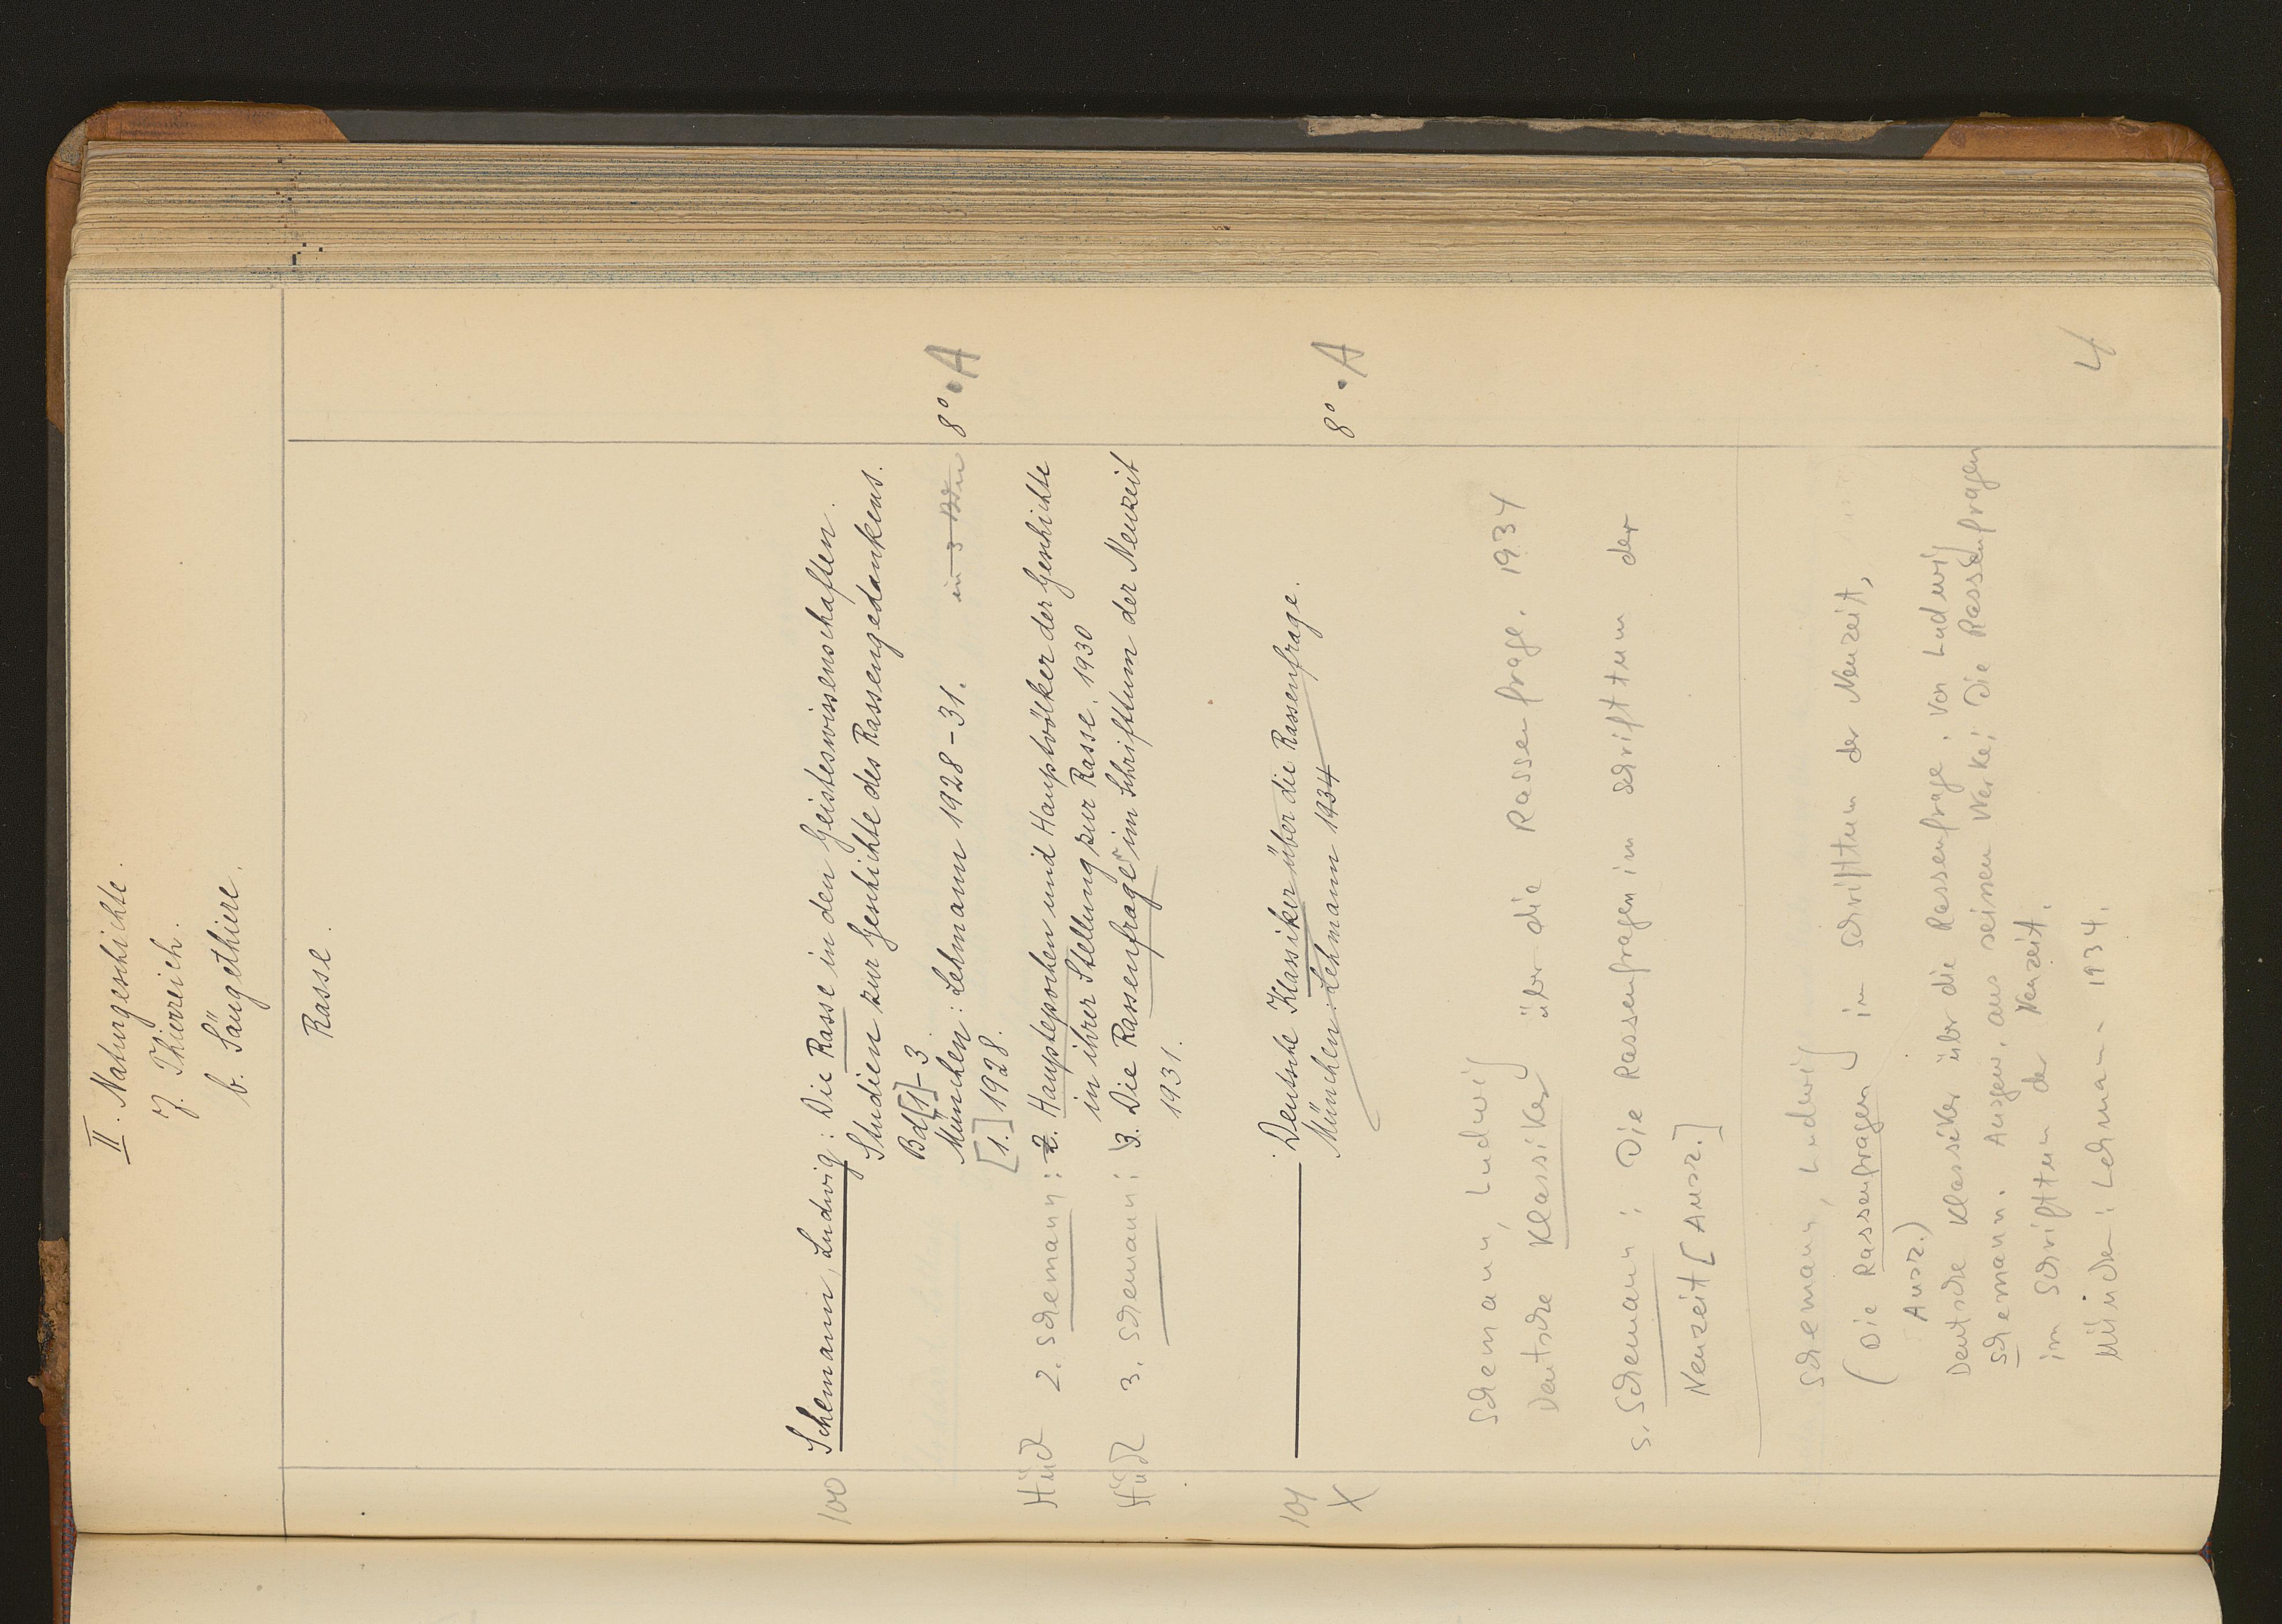 II. Naturgeschichte.
7. Thierreich.
b. Säugethiere.
Rasse.
100 Schemann, Ludwig: Die Rasse in den Geisteswissenschaften.
Studien zur Geschichte des Rassengedankens.
Bd[1]-3
München: Lehmann 1928-31. in 3 Bdn 8° A
[1.] 1928.
Hüd 2. Schemann: 2. Hauptepochen und Hauptvölker der Geschichte
in ihrer Stellung zur Rasse. 1930
Hüd 3. Schemann: 3. Die Rassenfragen im Schrifttum der Neuzeit
1931.
101 Deutsche Klassiker über die Rassenfrage.
X München: Lehmann 1934 8° A
Schemann, Ludwig
Deutsche Klassiker über die Rassenfrage. 1934
s. Schemann: Die Rassenfragen im Schrifttum der
Neuzeit [Ausz.]
Schemann, Ludwig
(Die Rassenfragen im Schrifttum der Neuzeit,
Ausz.)
Deutsche Klassiker über die Rassenfrage. Von Ludwig
Schemann. Ausgew. aus seinem Werke: Die Rassenfragen
im Schrifttum der Neuzeit.
München: Lehmann 1934.
4